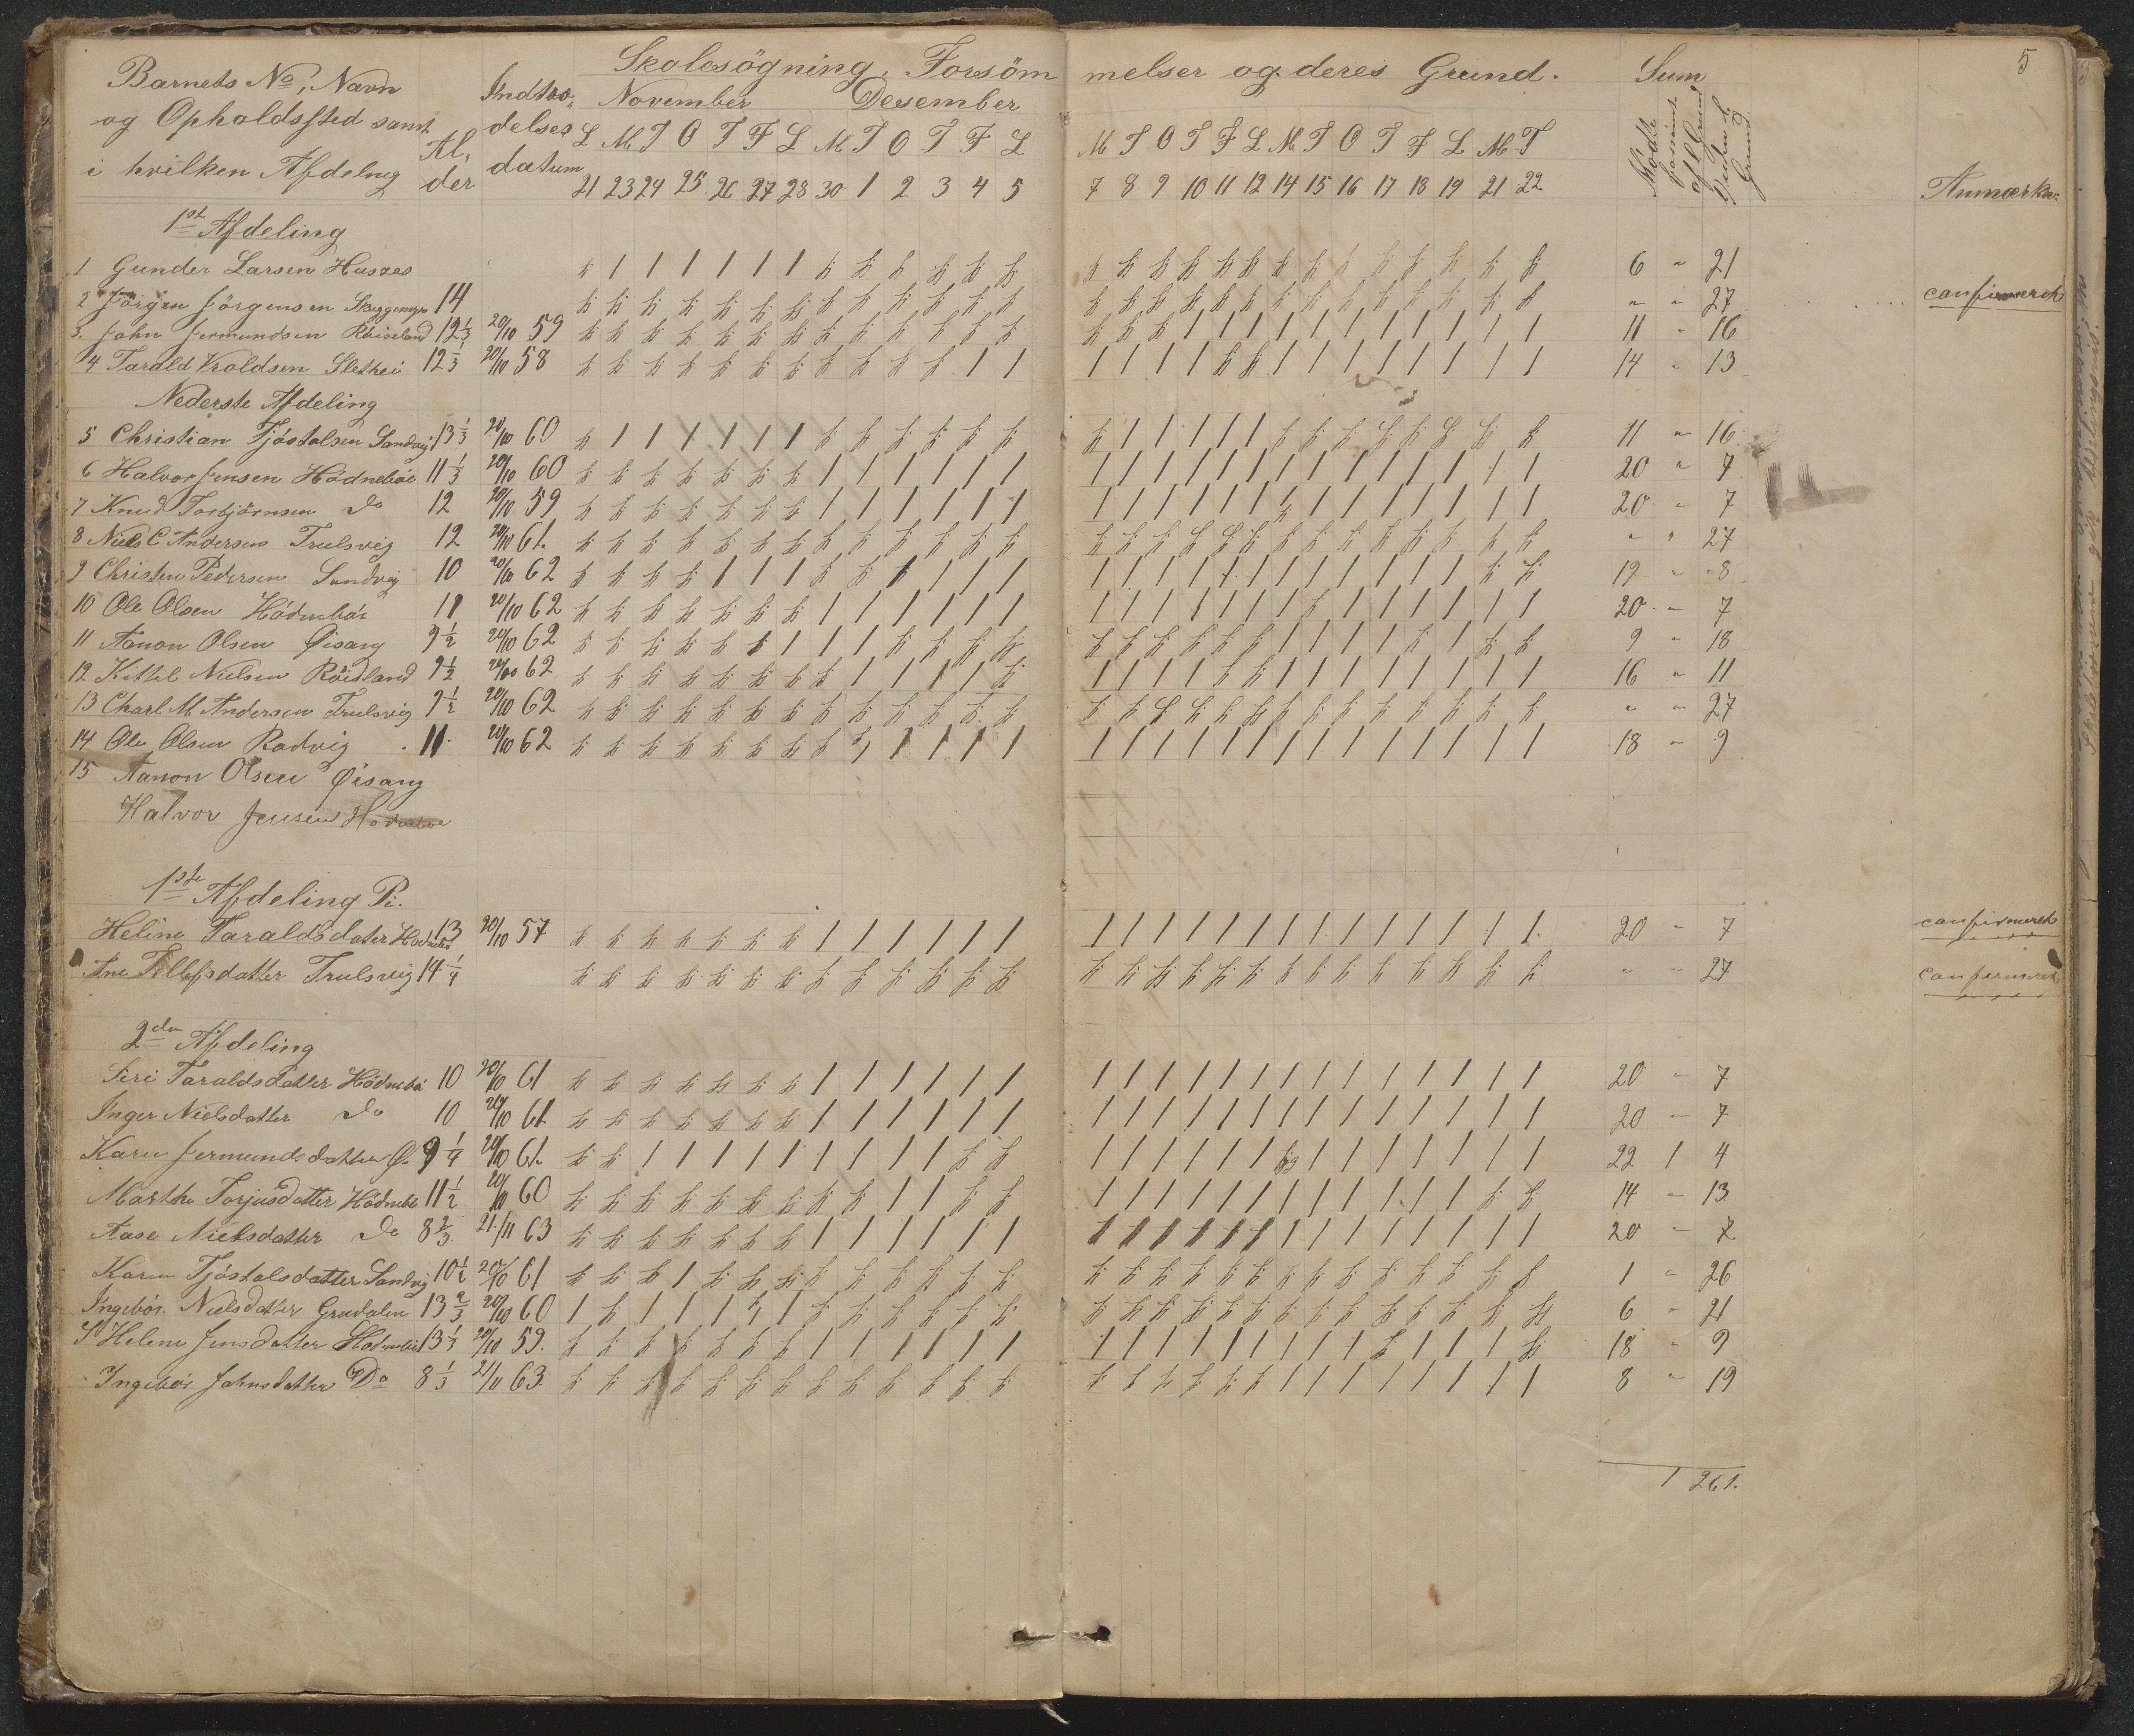 Skolesögning, Forsömmelser og deres Grund. Sum 5
Barnets No, Navn og Opholdssted samt i hvilken Afdeling
Alder
Indtrædelses datum
November Desember
L M T O T F L M T O T F L M T O T F L M T O T F L M T
21 23 24 25 26 27 28 30 1 2 3 4 5 7 8 9 10 11 12 14 15 16 17 18 19 21 22
Mödte forsömt Grund
Anmærkn:
1st Afdeling
1 Gunder Larsen 6 " 21
2 Jörgen Jörgensen 14 " " 27 confirmeret
3. John Jermundsen Röiseland 12 1/3 20/10 59 11 " 16
4 Tarald Slethei 12 1/3 20/10 58 14 " 13
Nederste Afdeling
5 Christian Tjöstolsen Sandvig 13 1/3 20/10 60 11 " 16
6 Halvor Jensen Hödneböe 11 1/3 20/10 60 20 " 7
7 Knud Torbjörnsen Do 12 20/10 59 20 " 7
8 Niels C Andersen Trulsvig 12 20/10 61. " " 27
9 Christen Pedersen Sandvig 10 20/10 62 19 " 8
10 Ole Olsen Hödnebör 20/10 62 20 " 7
11 Aanon Olsen Öisang 9 1/2 20/10 62 9 " 18
12 Kittil Nielsen Röidland 9 1/2 20/10 62 16 " 11
13 Charl M. Andersen Trulsvig 9 1/2 20/10 62 " " 27
14 Ole Olsen Rodvig 11. 20/10 62 18 " 9
15 Aanon Olsen Öisang
Halvor Jensen Hödnebö
1ste Afdeling Pi.
Heline Taraldsdater 13 20/10 57 20 " 7 confirmeret
Ane Tellefsdatter Trulsvig 14 1/4 " " 27 confirmeret
2den Afdeling
Siri Taraldsdatter Hödnebö 10 20/10 61 20 " 7
Inger Nielsdatter Do 10 20/10 61 20 " 7
Karen Jermundsdatter Ö. 9 1/4 20/10 61. 22 1 4
Marthe Torjusdatter Hödnebö 11 1/2 20/10 60 14 " 13
Aase Nielsdatter Do 8 2/3 21/11 63 20 " 7
Karen Tjöstolsdatter Sandvig 10 1/2 20/10 61 1 " 26
Ingebör. Nielsdatter Grudalen 13 2/3 20/10 60 6 " 21
Helene Jensdatter Hödnebö 13 1/4 20/10 59. 18 " 9
Ingebör Johnsdatter Do 8 1/3 21/11 63 8 " 19
1 261.